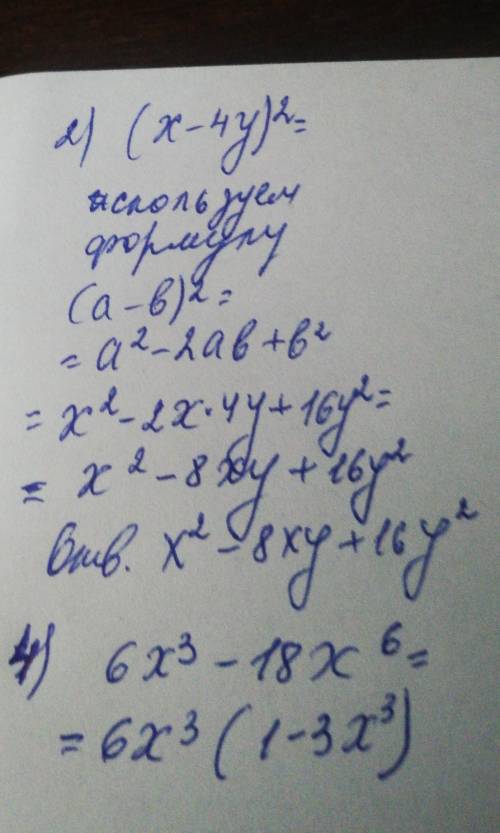 2) (x-4y)²=
используем
формулу
(a-в)²=
=a²-2aв+в²
=x²-2x·4y+16y²=
=x²-8xy+16y²
Отв. x²-8xy+16y²
4) 6x³-18x⁶=
=6x³(1-3x³)